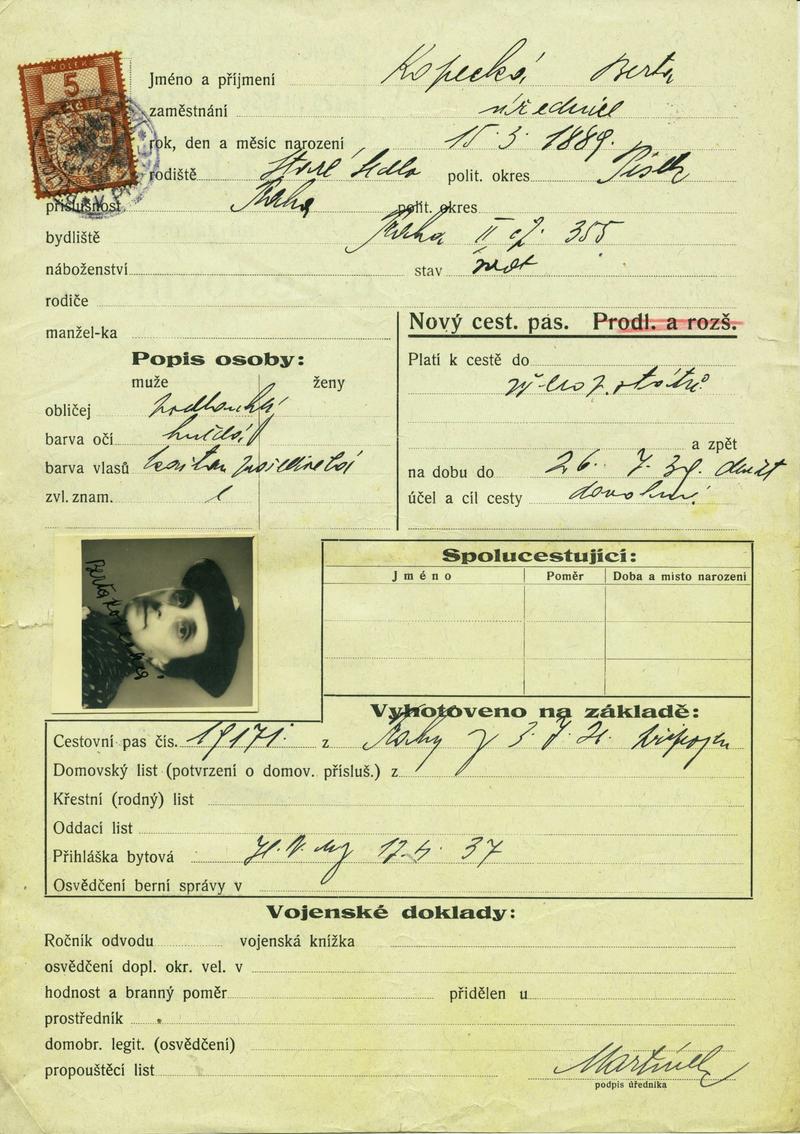 KOLEK
5
Jméno a příjmení Kopecká Berta
zaměstnání úřednice
rok, den a měsíc narození 15. 3. 1889.
rodiště Staré Sedlo polit. okres Písek
příslušnost Praha polit. okres
bydliště Praha II čp. 355
náboženství stav
rodiče
manžel-ka
Popis osoby:
muže ženy
obličej podlouhlý
barva očí hnědá
barva vlasů kaštan prošedivělá
zvl. znam.
Nový cest. pas. Prodl. a rozš.
Platí k cestě do
států
a zpět
na dobu do 26. 7. 39.
účel a cíl cesty dovolená
Berta Kopecká
Spolucestující:
Jméno Poměr Doba a místo narození
Vyhotoveno na základě:
Cestovní pas čís. 19171. z Prahy
Domovský list (potvrzení o domov. přísluš.) z
Křestní (rodný) list
Oddací list
Přihláška bytová 37
Osvědčení berní správy v
Vojenské doklady:
Ročník odvodu vojenská knížka
osvědčení dopl. okr. vel. v
hodnost a branný poměr přidělen u
prostředník
domobr. legit. (osvědčení)
propouštěcí list
podpis úředníka